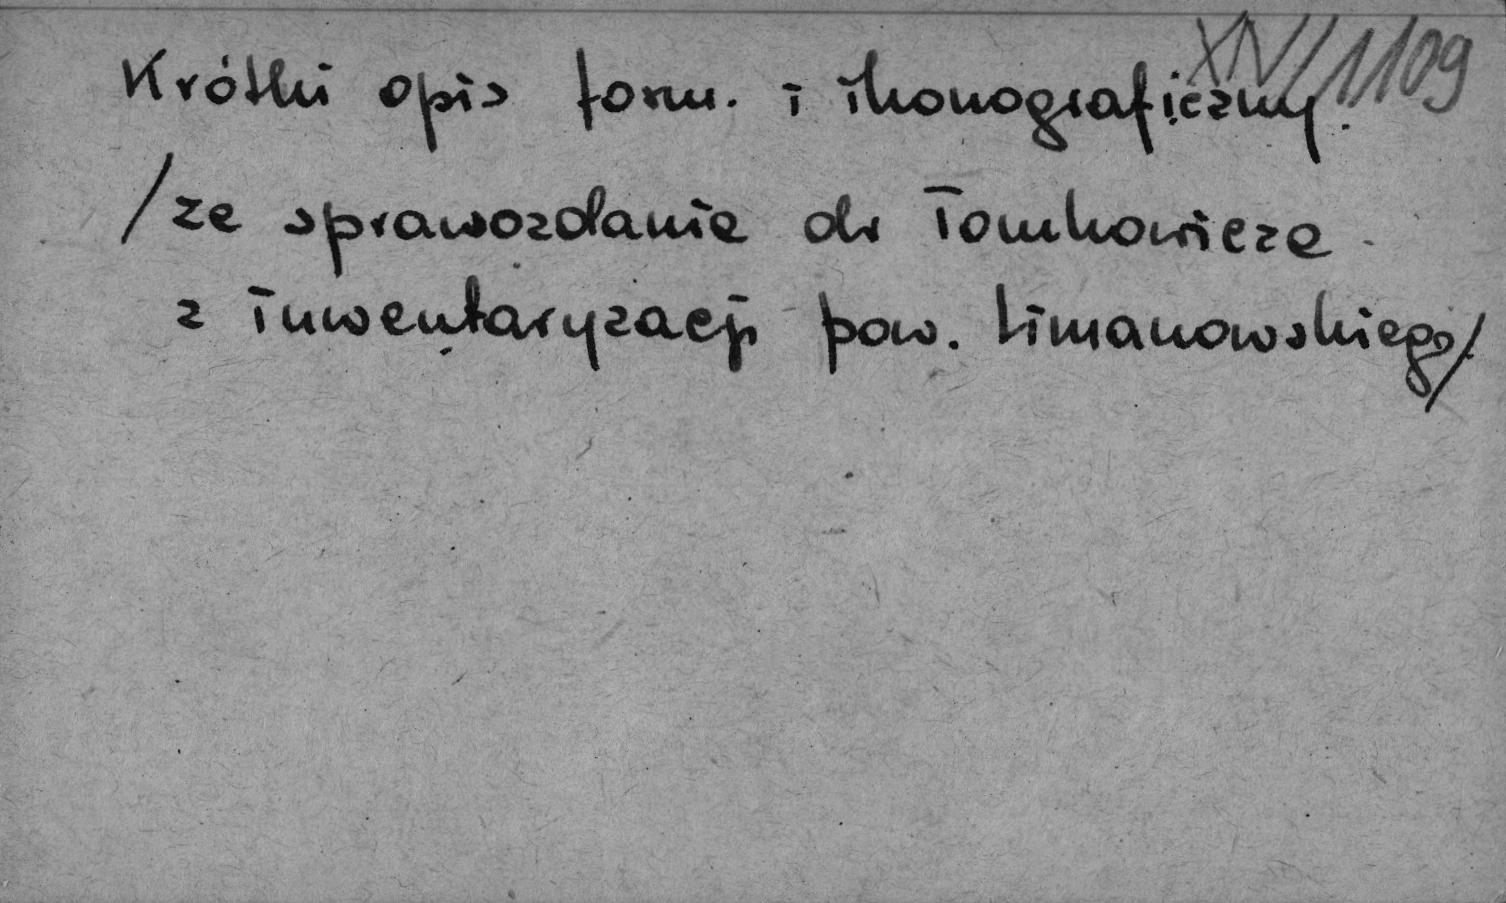 XIV/1109
Krótki opis form. i ikonograficzny.
/ze sprawozdania dr Tomkowicza
z inwentaryzacji pow. Limanowskiego/